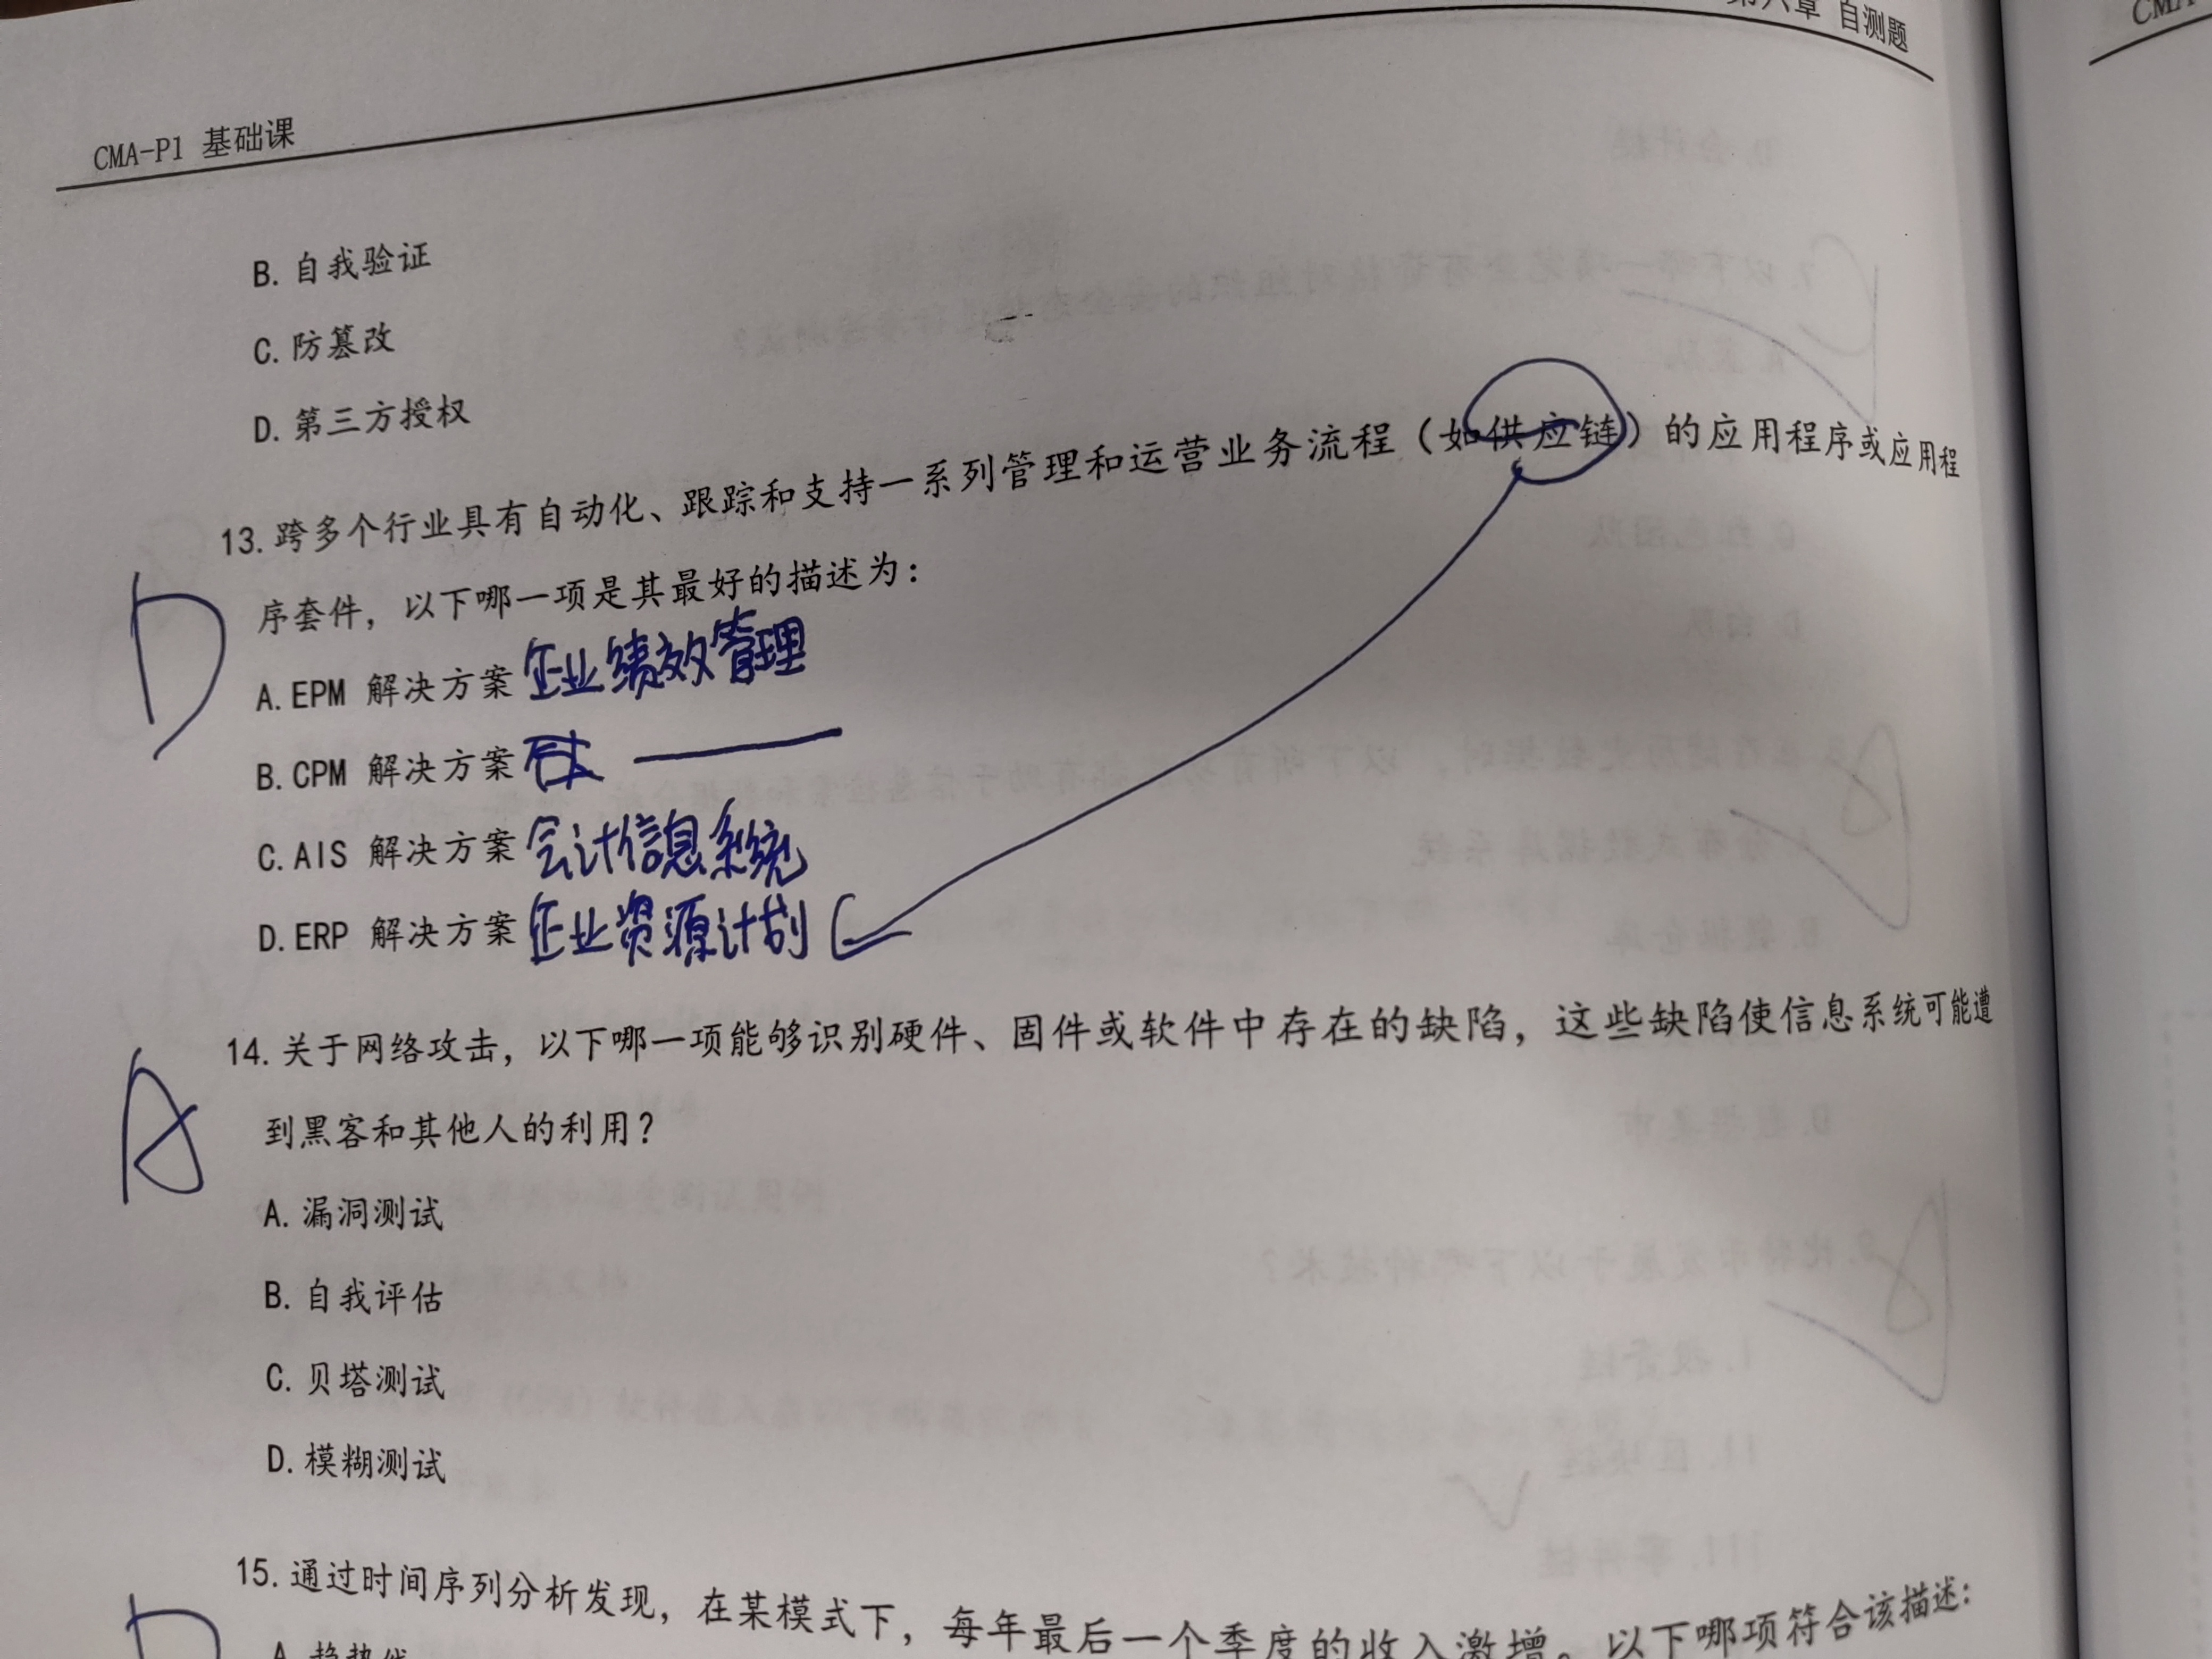 第六章 自测题
CMA-P1 基础课
B. 自我验证
C. 防篡改
D. 第三方授权
13. 跨多个行业具有自动化、跟踪和支持一系列管理和运营业务流程（如供应链）的应用程序或应用程
序套件，以下哪一项是其最好的描述为：
D
A. EPM 解决方案 企业绩效管理
B. CPM 解决方案
C. AIS 解决方案 会计信息系统
D. ERP 解决方案 企业资源计划
14. 关于网络攻击，以下哪一项能够识别硬件、固件或软件中存在的缺陷，这些缺陷使信息系统可能遭
到黑客和其他人的利用？
A
A. 漏洞测试
B. 自我评估
C. 贝塔测试
D. 模糊测试
15. 通过时间序列分析发现，在某模式下，每年最后一个季度的收入激增。以下哪项符合该描述：
A. 趋势线
CMA